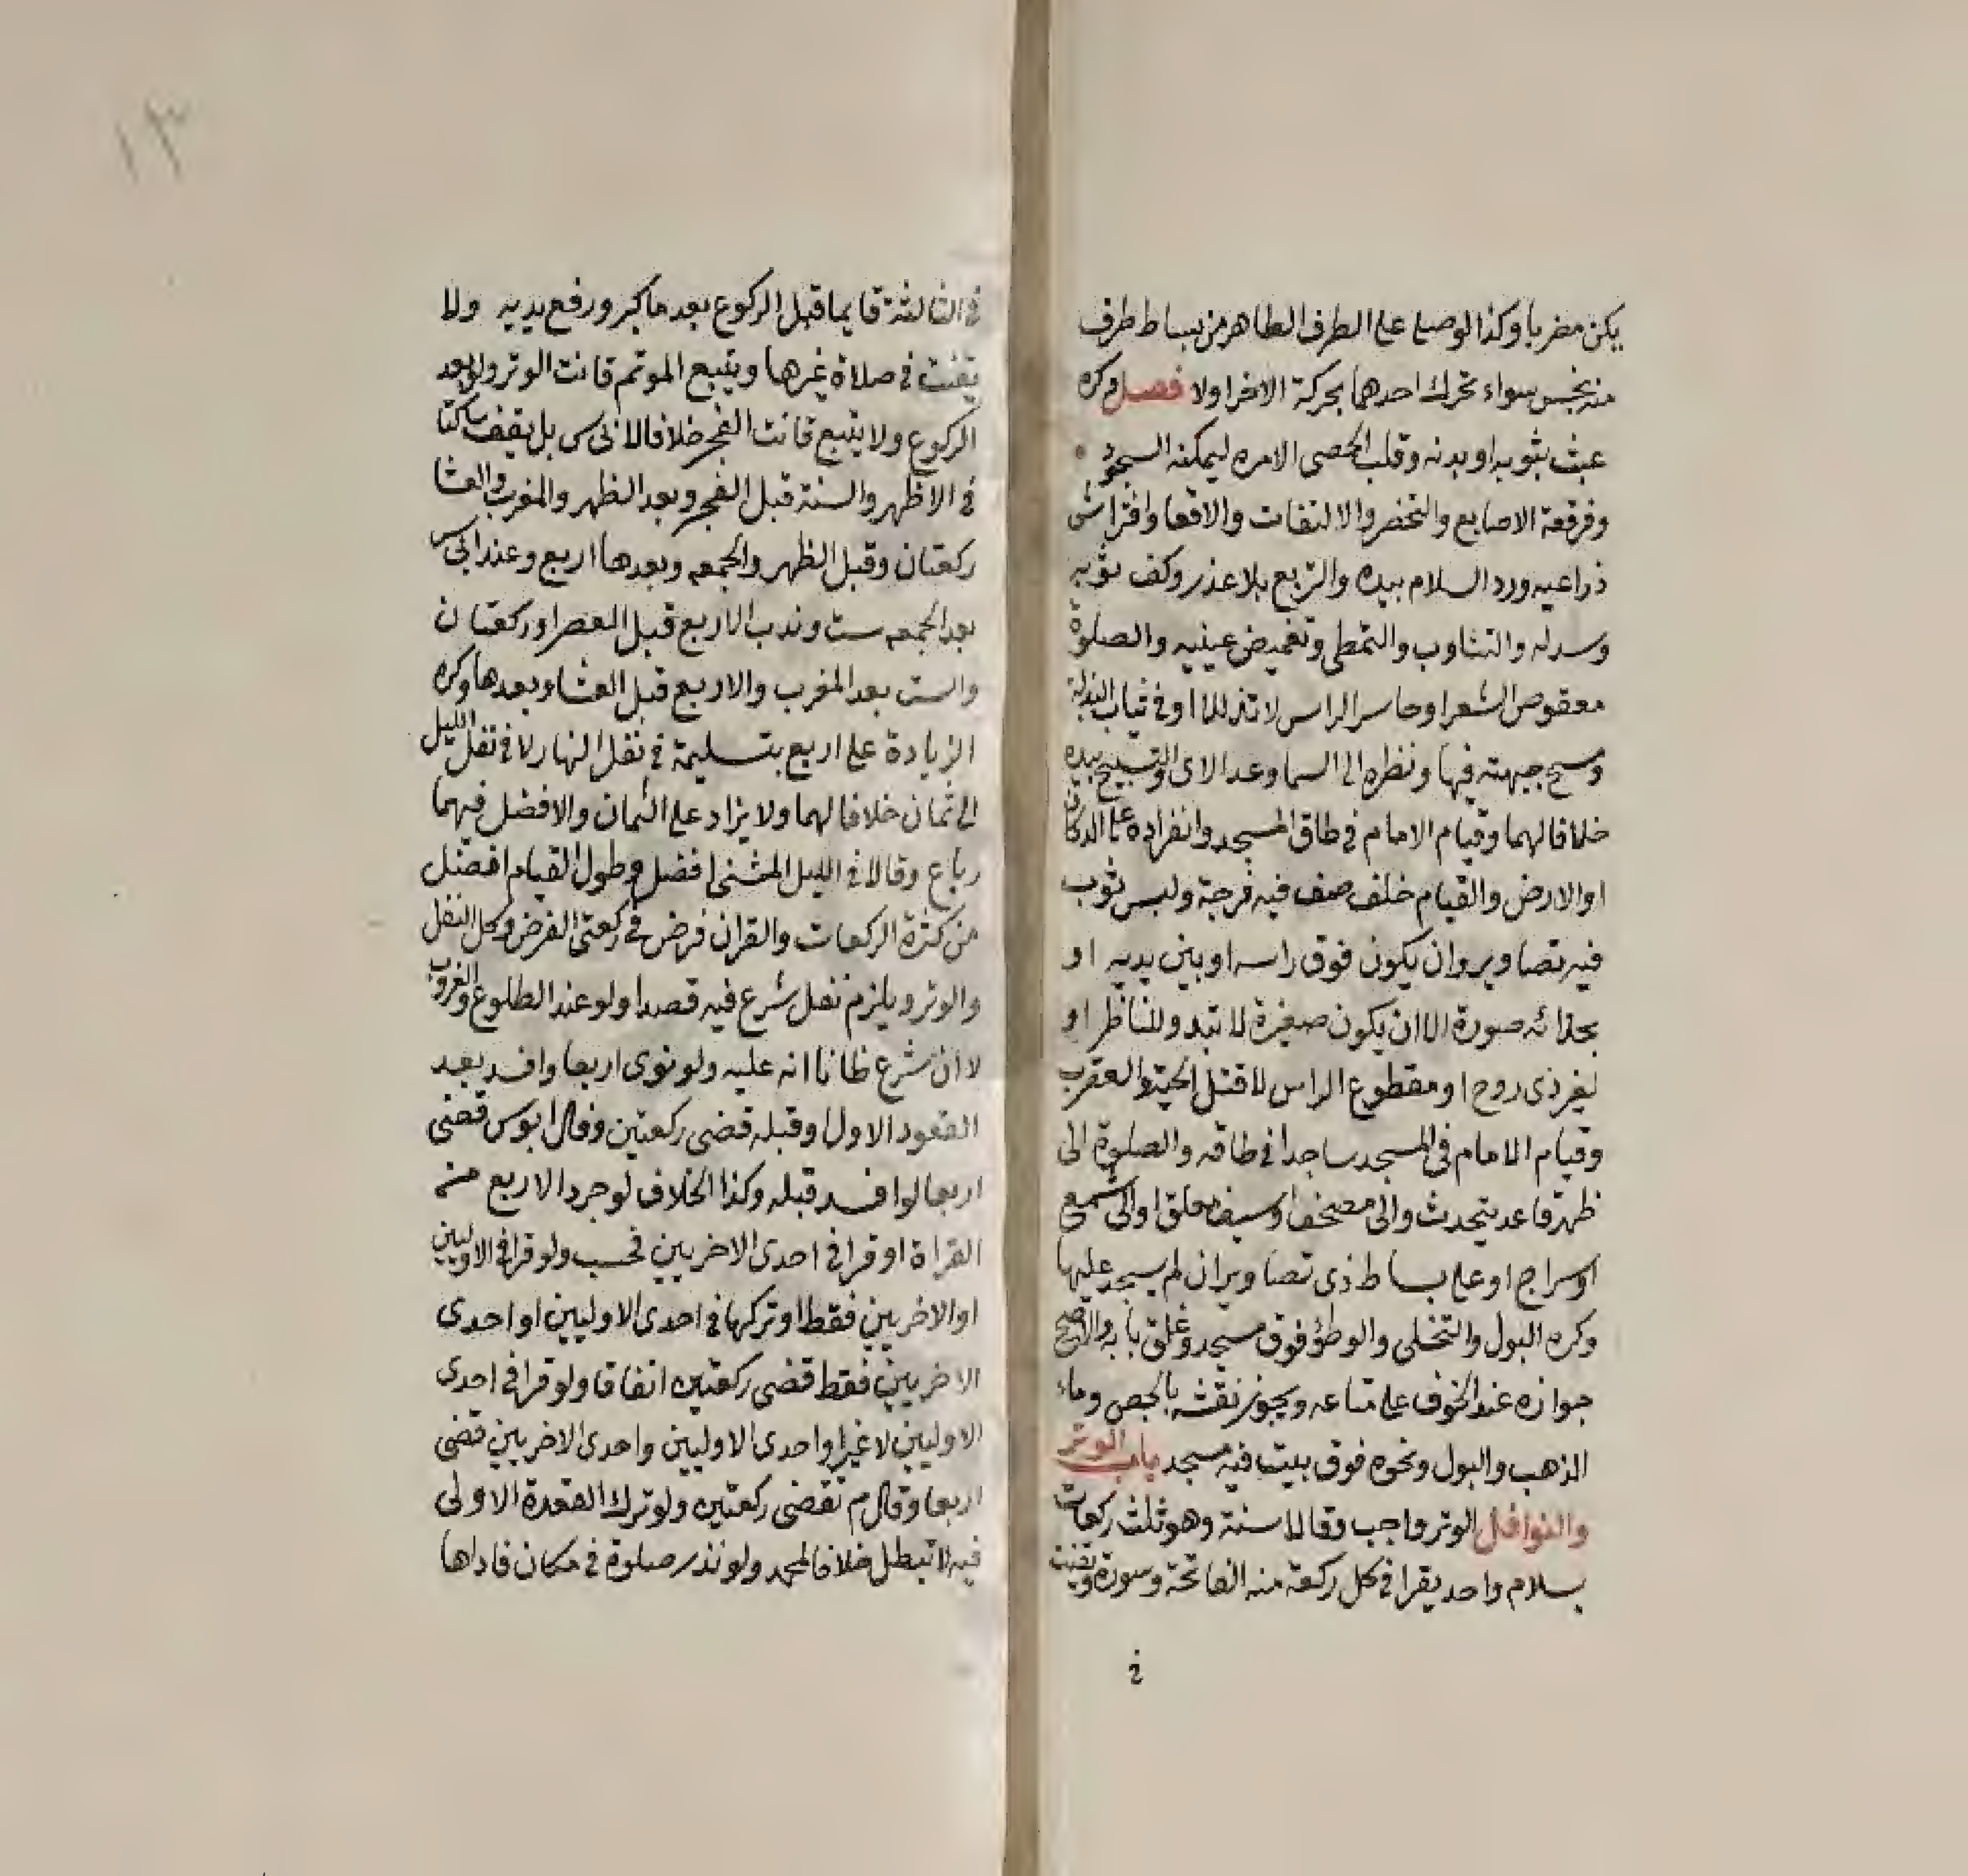 يكن مضربا وكذا لو صلى على الطرف الطاهر من بساط طرف
منه نجس سواء تحرك احدهما بحركة الاخر اولا فصل وكره
عبث بثوبه او بدنه وقلب الحصى الا مره ليمكنه السجود
وفرقعة الاصابع والتخصر والالتفات والاقعا وافتراش
ذراعيه ورد السلام بيده والتربع بلا عذر وكف ثوبه
وسدله والتثاوب والتمطي وتغميض عينيه والصلوة
معقوص الشعر او حاسر الراس لا تذللا او في ثياب البذلة
ومسح جبهته فيها ونظره الى السما وعد الاى والتسبيح بيده
خلافا لهما وقيام الامام في طاق المسجد وانفراده على الدكان
او الارض والقيام خلف صف فيه فرجة ولبس ثوب
فيه تصاوير وان يكون فوق راسه او بين يديه او
بحذائه صورة الا ان يكون صغيرة لا تبدو للناظر او
لغير ذى روح او مقطوع الراس لا قتل الحية والعقرب
وقيام الامام في المسجد ساجدا في طاقه والصلوة الى
ظهر قاعد يتحدث والى مصحف او سيف معلق او الى شمع
او سراج او على بساط ذى تصاوير ان لم يسجد عليها
وكره البول والتخلى والوطؤ فوق مسجد وغلق بابه والاصح
جوازه عند الخوف على متاعه ويجوز نقشه بالجص وماء
الذهب والبول ونحوه فوق بيت فيه مسجد باب الوتر
والنوافل الوتر واجب وقالا سنة وهو ثلث ركعات
بسلام واحد يقرا في كل ركعة منه الفاتحة وسورة ويقنت
في
١٣
في الثالثة قايما قبل الركوع بعد ما كبر ورفع يديه ولا
يقنت في صلاة غيرها ويتبع الموتم قانت الوتر ولو بعد
الركوع ولا يتبع قانت الفجر خلافا لابى س بل يقف ساكتا
في الاظهر والسنة قبل الفجر وبعد الظهر والمغرب والعشا
ركعتان وقبل الظهر والجمعه وبعدها اربع وعند ابى س
بعد الجمعه ست وندب الاربع قبل العصر او ركعتان
والست بعد المغرب والاربع قبل العشا وبعدها وكره
الزيادة على اربع بتسليمة في نفل النهار لا في نفل الليل
الى ثمان خلافا لهما ولا يزاد على الثمان والافضل فيهما
رباع وقالا في الليل المثنى افضل وطول القيام افضل
من كثرة الركعات والقران فرض في ركعتى الفرض وكل النفل
والوتر ويلزم نفل شرع فيه قصدا ولو عند الطلوع والغروب
لا ان شرع ظانا انه عليه ولو نوى اربعا وافسد بعد
القعود الاول او قبله قضى ركعتين وقال ابو س قضى
اربعا لو افسد قبله وكذا الخلاف لو جرد الاربع من
القراة او قرا في احدى الاخريين فحسب ولو قرا في الاوليين
او الاخريين فقط او تركها في احدى الاوليين او احدى
الاخريين فقط قضى ركعتين اتفاقا ولو قرا في احدى
الاوليين لا غير او احدى الاوليين واحدى الاخريين قضى
اربعا وقال م تقضى ركعتين ولو ترك القعدة الاولى
فيه لا تبطل خلافا لمحمد ولو نذر صلوة في مكان فاداها